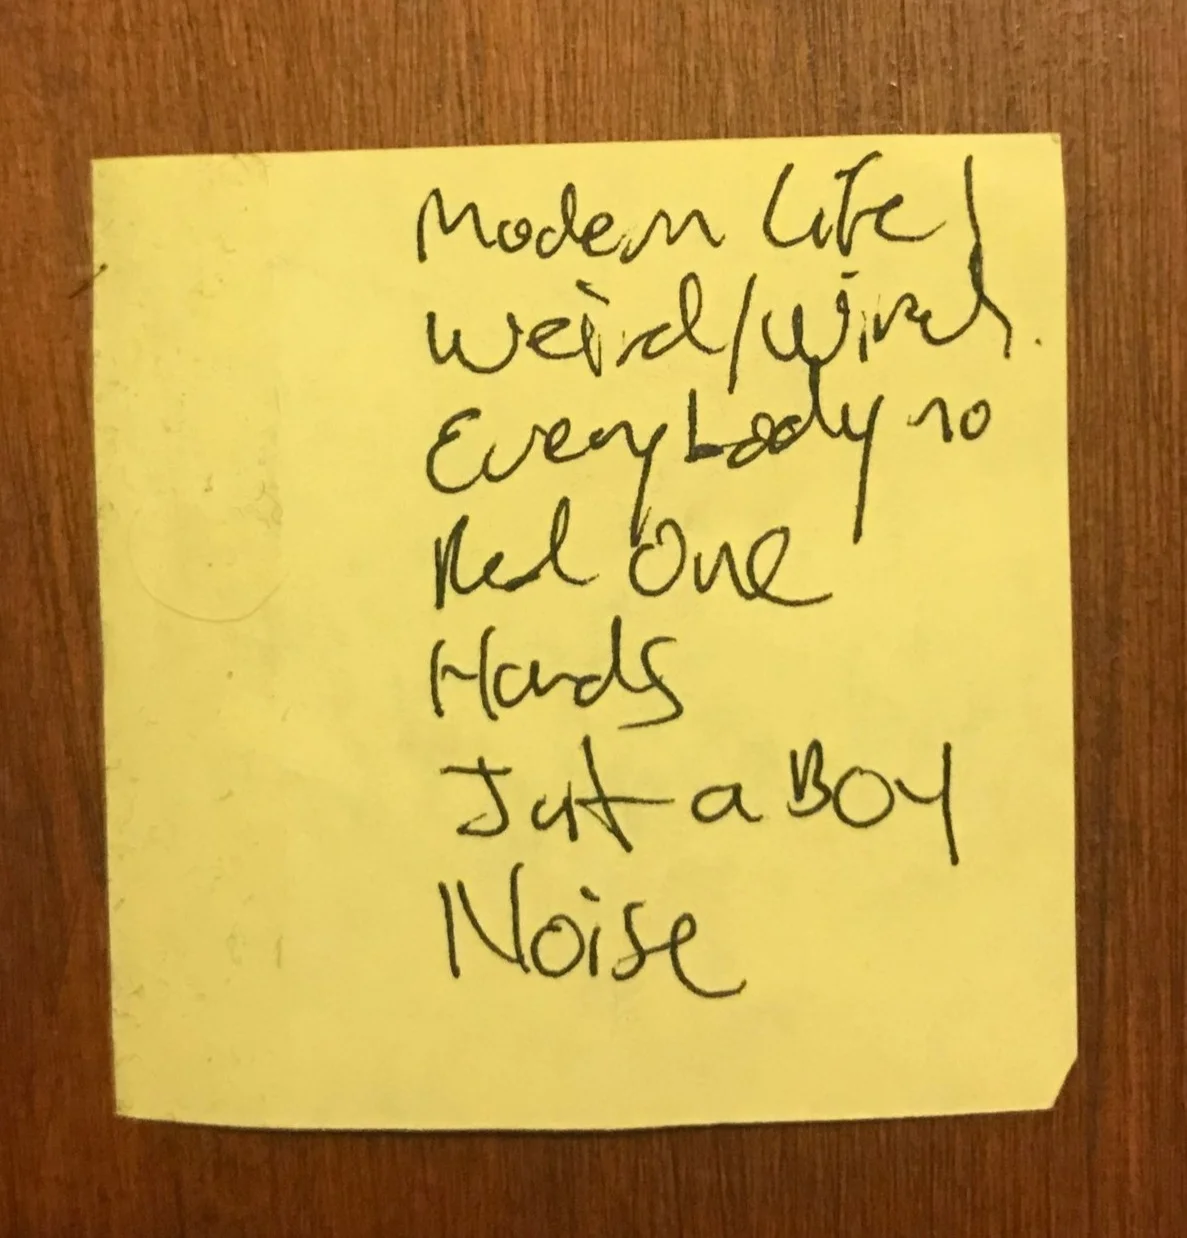 Modern Life!
Weird/Wired
Everybody no
Red One
Hands
Just a Boy
Noise